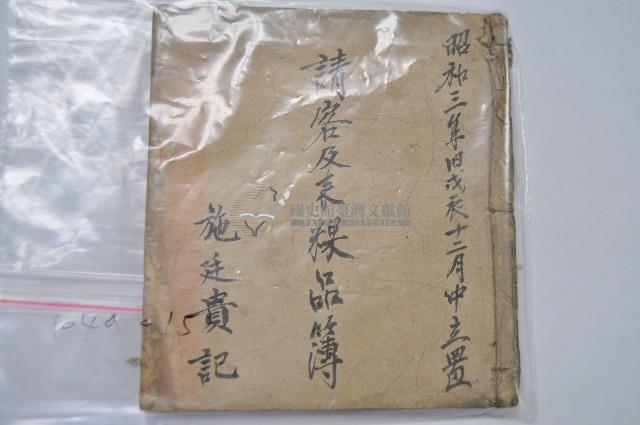 昭和三年旧戊辰十二月中立置
請客及来粿品簿
施廷貴記
國史館臺灣文獻館
TAIWAN HISTORICA
1049-15